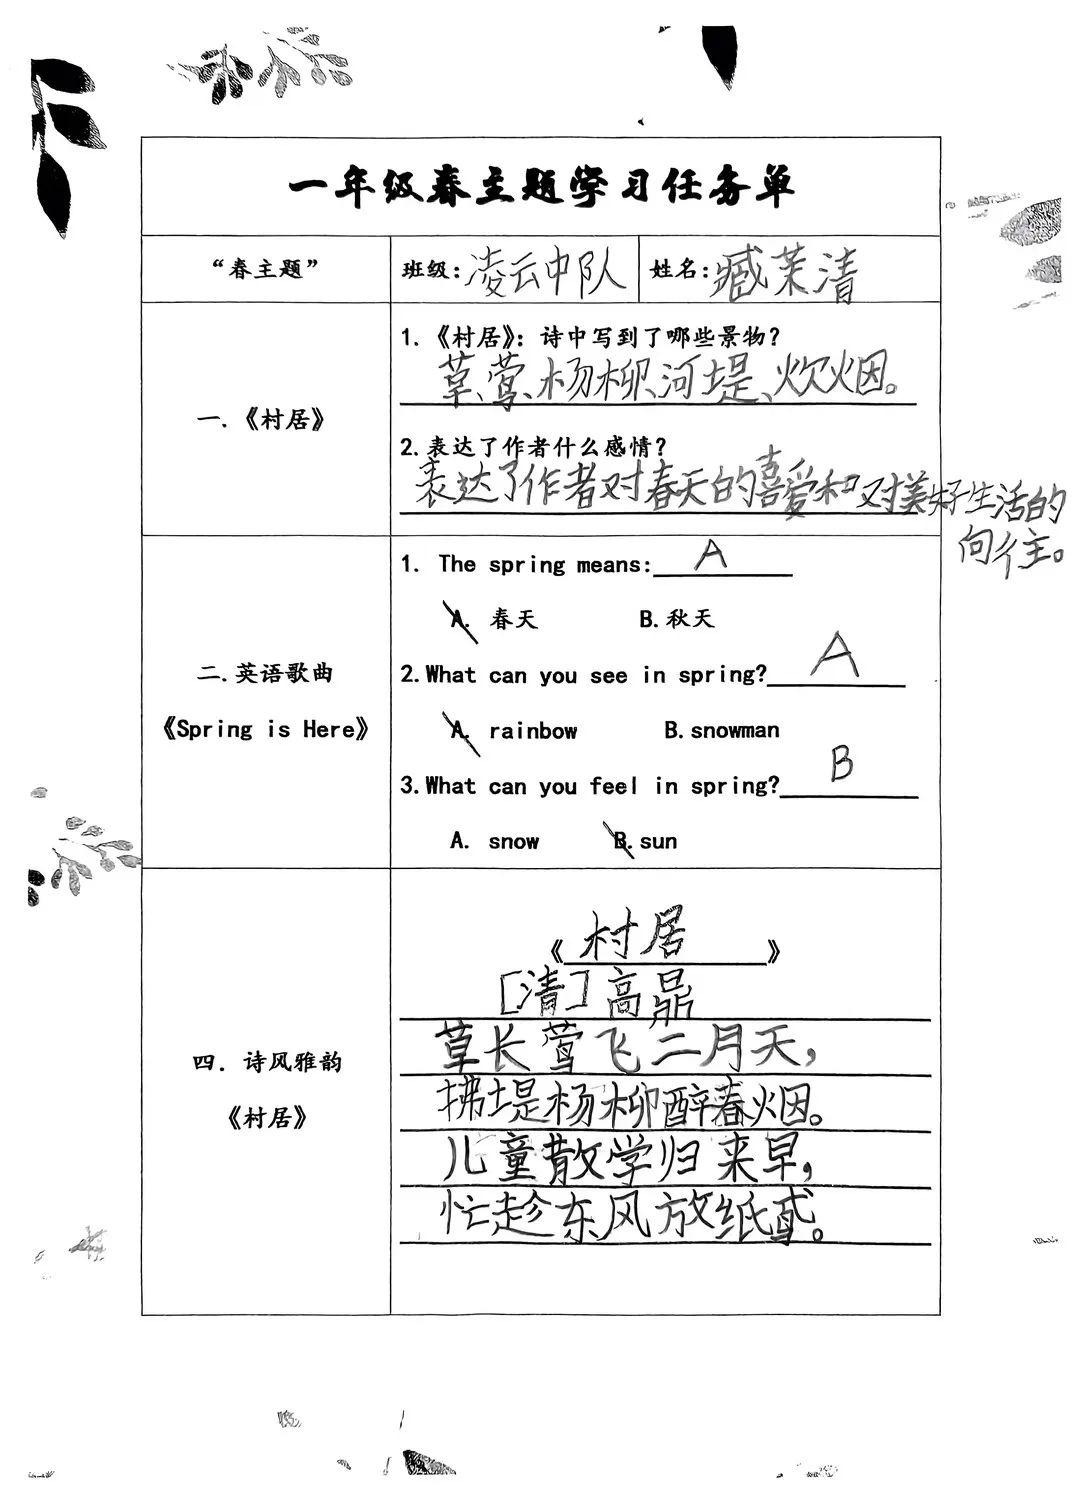 一年级春主题学习任务单
“春主题”
班级:凌云中队
姓名:臧茉清
一.《村居》
1.《村居》：诗中写到了哪些景物？
草、莺、杨柳、河堤、炊烟。
2.表达了作者什么感情？
表达了作者对春天的喜爱和对美好生活的
向往。
二.英语歌曲
《Spring is Here》
1. The spring means:A
A. 春天 B.秋天
2.What can you see in spring?A
A. rainbow B.snowman
3.What can you feel in spring?B
A. snow B.sun
四. 诗风雅韵
《村居》
《村居》
[清]高鼎
草长莺飞二月天，
拂堤杨柳醉春烟。
儿童散学归来早，
忙趁东风放纸鸢。